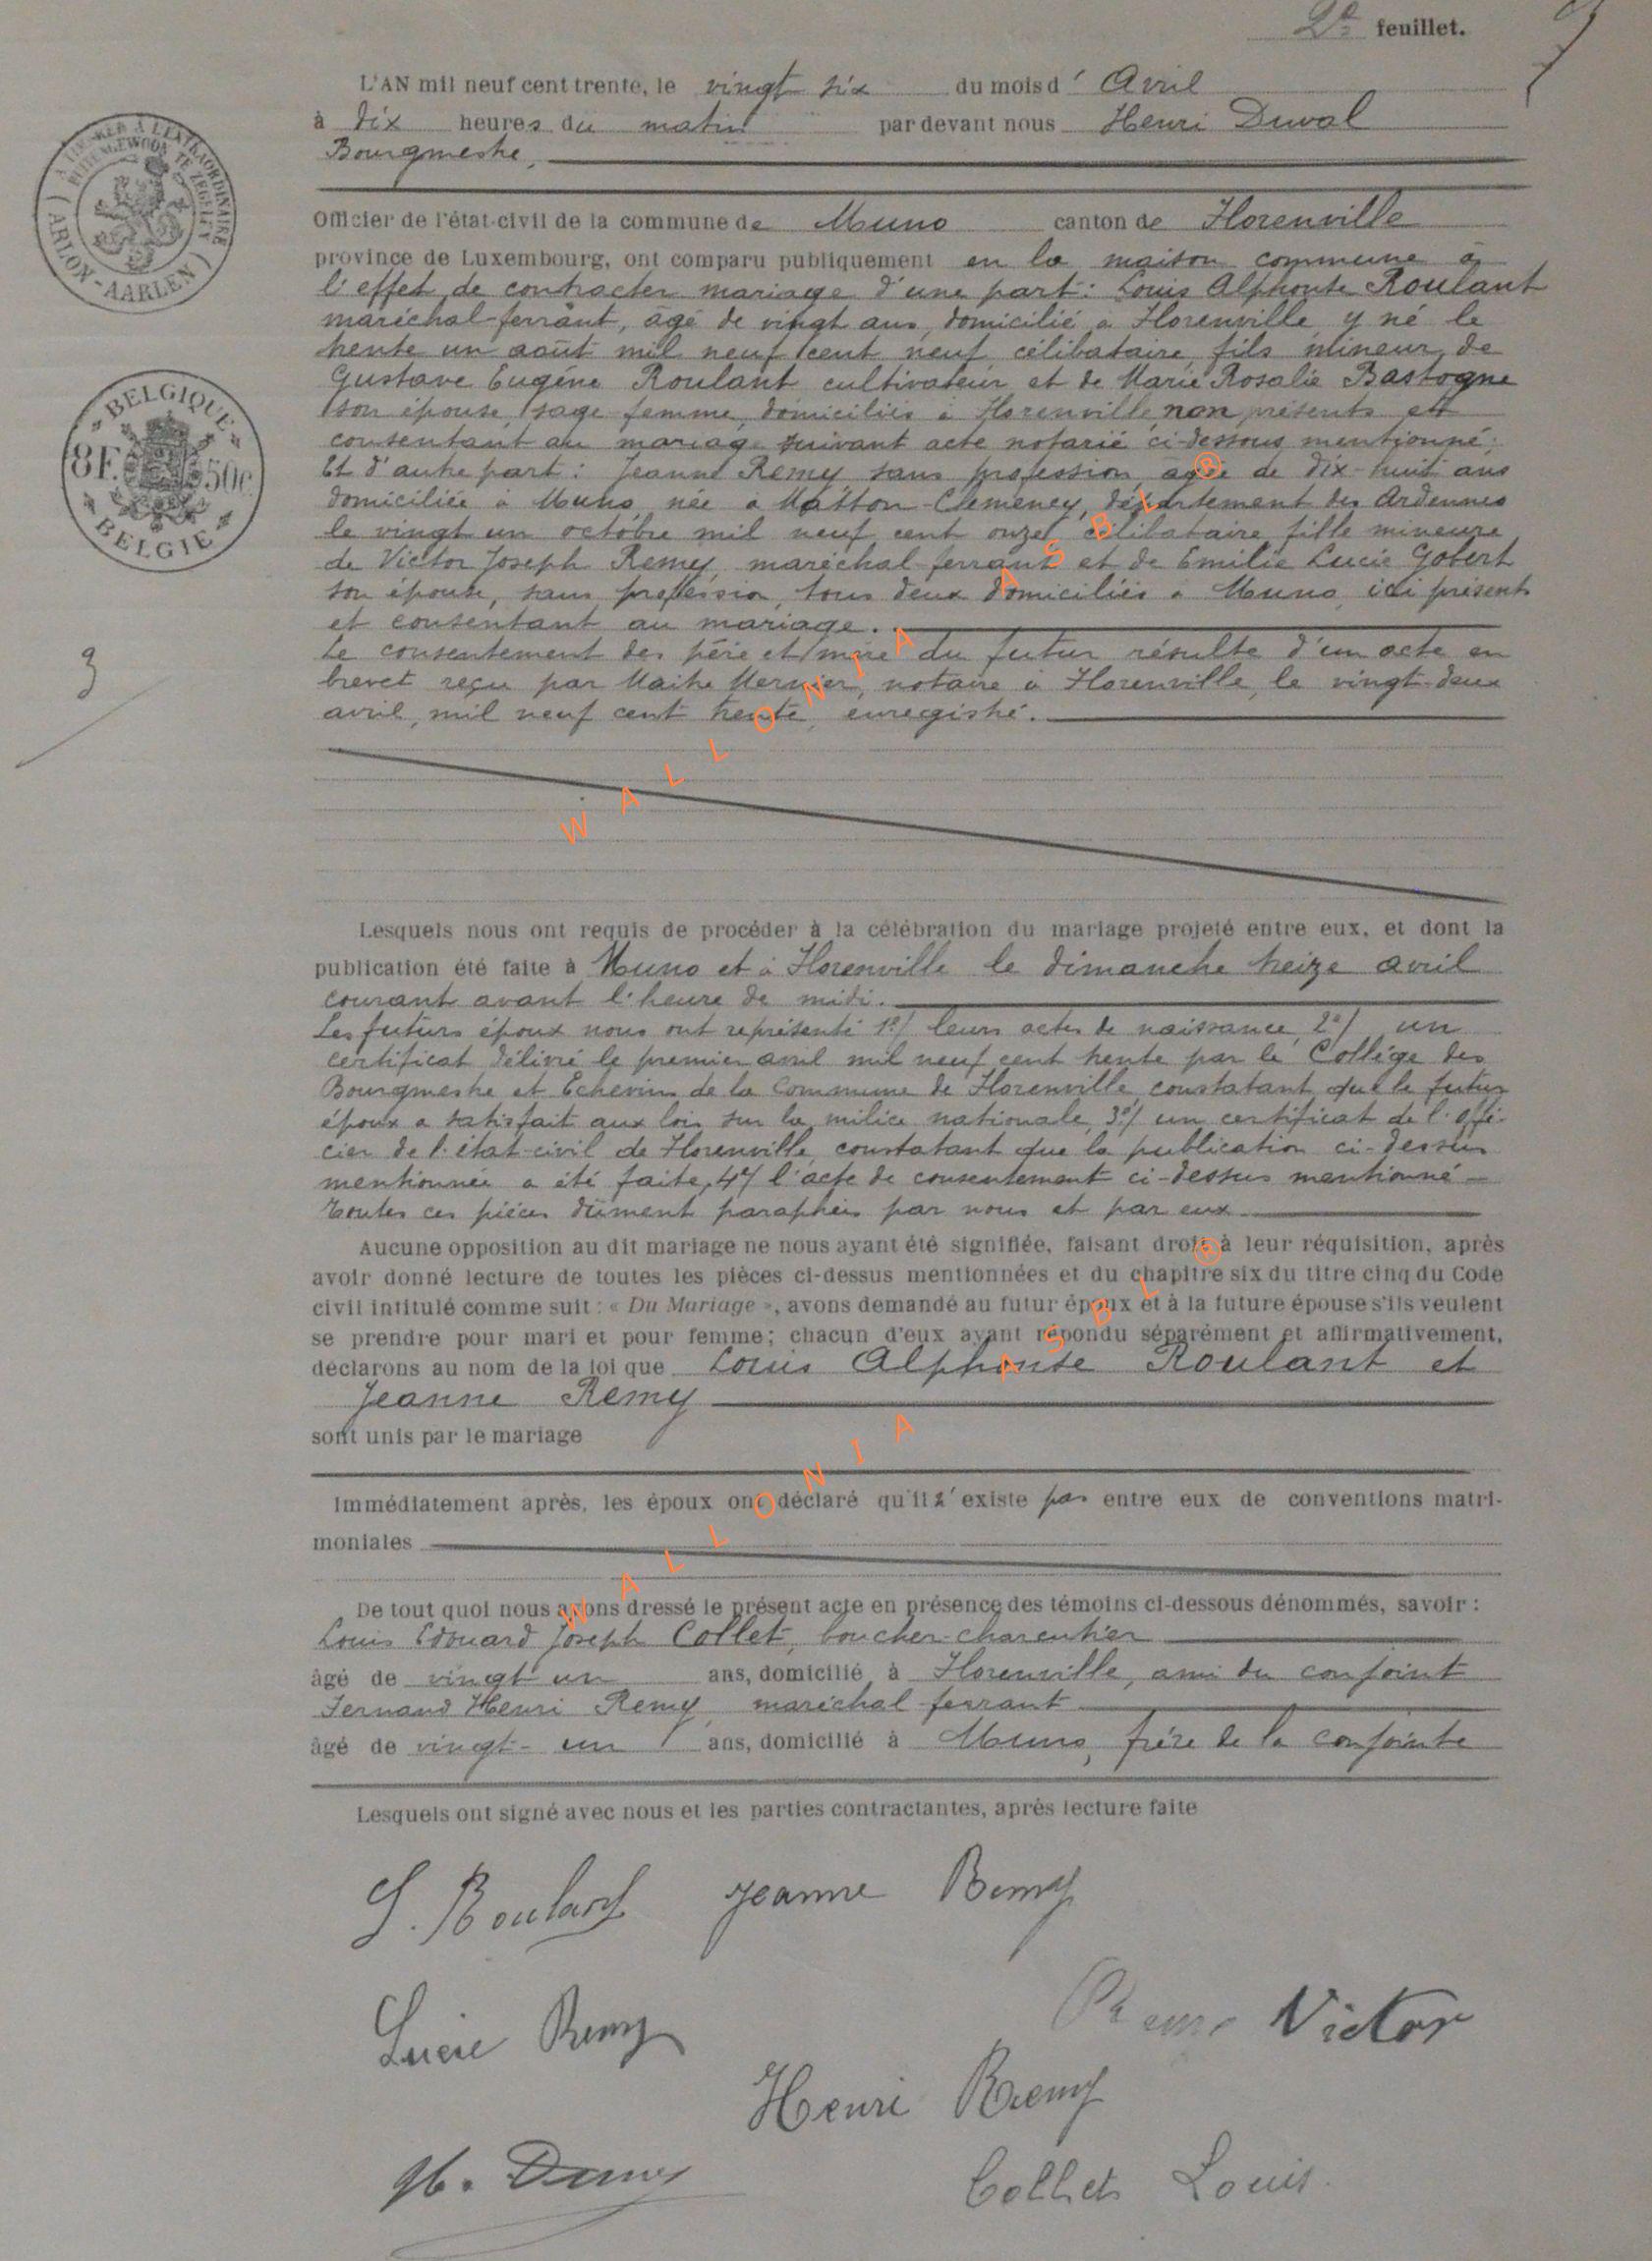 2e feuillet.
L'AN mil neuf cent trente, le vingt six du mois d' Avril
à dix heures du matin par devant nous Henri Duval
Bourgmestre,
Officier de l'état-civil de la commune de Muno canton de Florenville
province de Luxembourg, ont comparu publiquement en la maison commune à
l'effet de contracter mariage d'une part : Louis Alphonse Roulant
maréchal-ferrant, agé de vingt ans, domicilié à Florenville y né le
trente un août mil neuf cent neuf célibataire, fils mineur de
Gustave Eugéne Roulant cultivateur et de Marie Rosalie Bastogne
son épouse, sage femme, domiciliés à Florenville, non présents et
consentant au mariage suivant acte notarié ci-dessous mentionné;
Et d'autre part : Jeanne Remy sans profession, agée de dix-huit ans
domiciliée à Muno, née à Matton-Clemency, département des Ardennes
le vingt un octobre mil neuf cent onze, célibataire, fille mineure
de Victor Joseph Remy, maréchal ferrant et de Emilie Lucie Gobert
son épouse, sans profession, tous deux domiciliés à Muno, ici présents
et consentant au mariage.
Le consentement des père et mère du futur résulte d'un acte en
brevet reçu par Maitre Mernier, notaire à Florenville, le vingt-deux
avril, mil neuf cent trente, enregistré.
Lesquels nous ont requis de procéder à la célébration du mariage projeté entre eux, et dont la
publication été faite à Muno et à Florenville le dimanche treize avril
courant avant l'heure de midi.
Les futurs époux nous ont représenté 1°/ leurs actes de naissance, 2°/ un
certificat délivré le premier avril mil neuf cent trente par le Collége des
Bourgmestre et Echevins de la Commune de Florenville constatant que le futur
époux a satisfait aux lois sur la milice nationale, 3°/ un certificat de l'offi-
cier de l'état-civil de Florenville, constatant que la publication ci-dessus
mentionnée a été faite, 4°/ l'acte de consentement ci-dessus mentionné -
Toutes ces pièces dûment paraphées par nous et par eux
Aucune opposition au dit mariage ne nous ayant été signifiée, faisant droit à leur réquisition, après
avoir donné lecture de toutes les pièces ci-dessus mentionnées et du chapitre six du titre cinq du Code
civil intitulé comme suit : « Du Mariage », avons demandé au futur époux et à la future épouse s'ils veulent
se prendre pour mari et pour femme; chacun d'eux ayant répondu séparément et affirmativement,
déclarons au nom de la loi que Louis Alphonse Roulant et
Jeanne Remy
sont unis par le mariage
Immédiatement après, les époux ont déclaré qu'il n'existe pas entre eux de conventions matri-
moniales
De tout quoi nous avons dressé le présent acte en présence des témoins ci-dessous dénommés, savoir :
Louis Edouard Joseph Collet, boucher-charcutier
âgé de vingt un ans, domicilié à Florenville, ami du conjoint
Fernand Henri Remy, maréchal ferrant
âgé de vingt-un ans, domicilié à Muno, frére de la conjointe
Lesquels ont signé avec nous et les parties contractantes, après lecture faite
L. Roulant Jeanne Remy
Lucie Remy Remy Victor
Henri Remy
H. Duval Collet Louis
3
BELGIQUE
8F. 50c
BELGIE
(ARLON-AARLEN)
WALLONIA ASBL ®
WALLONIA ASBL ®